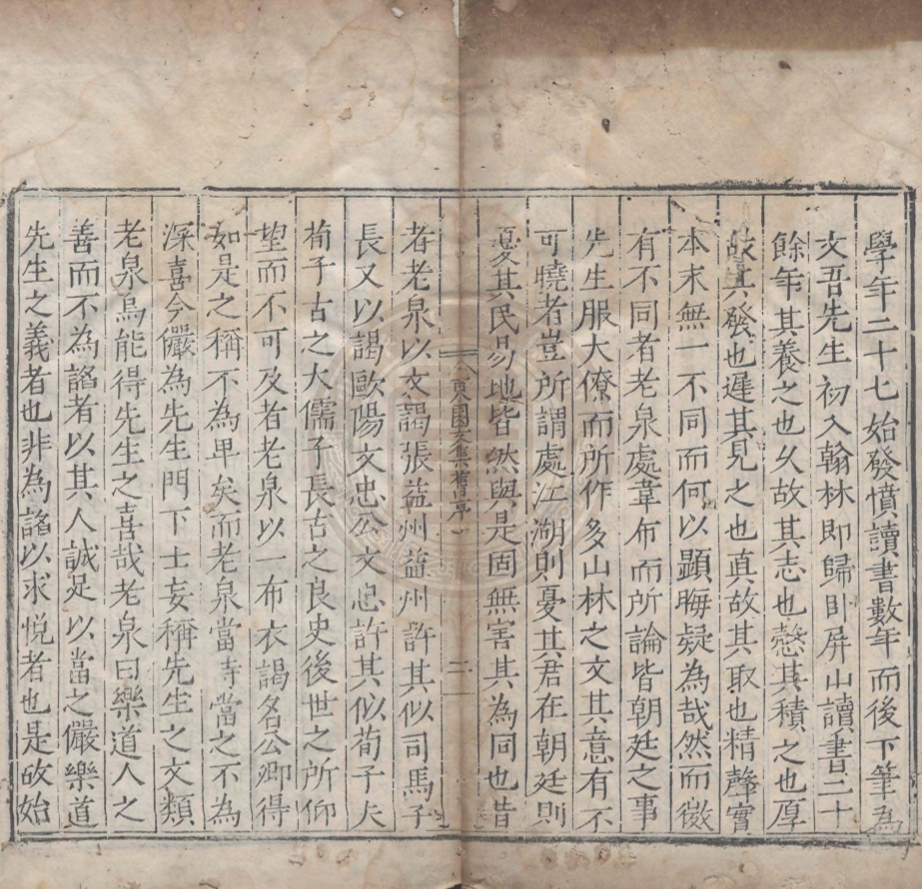 學年二十七始發憤讀書數年而後下筆為
文吾先生初入翰林即歸卧屏山讀書三十
餘年其養之也久故其志也愨其積之也厚
故其發也遲其見之也真故其取也精聲實
本末無一不同而何以顯晦疑為哉然而微
有不同者老泉處韋布而所論皆朝廷之事
先生服大僚而所作多山林之文其意有不
可曉者豈所謂處江湖則憂其君在朝廷則
憂其民易地皆然與是固無害其為同也昔
東園文集舊序 二
者老泉以文謁張益州益州許其似司馬子
長又以謁歐陽文忠公文忠許其似荀子夫
荀子古之大儒子長古之良史後世之所仰
望而不可及者老泉以一布衣謁名公卿得
如是之稱不為卑矣而老泉當時當之不為
深喜今儼為先生門下士妄稱先生之文類
老泉烏能得先生之喜哉老泉曰樂道人之
善而不為諂者以其人誠足以當之儼樂道
先生之義者也非為諂以求悅者也是故始